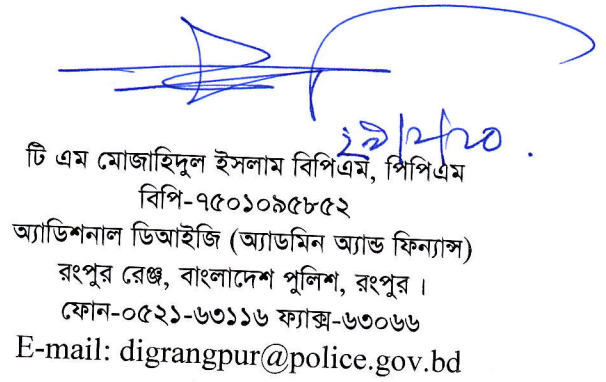 ২৯/২/২০.
টি এম মোজাহিদুল ইসলাম বিপিএম, পিপিএম
বিপি-৭৫০১০৯৫৮৫২
অ্যাডিশনাল ডিআইজি (অ্যাডমিন অ্যান্ড ফিন্যান্স)
রংপুর রেঞ্জ, বাংলাদেশ পুলিশ, রংপুর ।
ফোন-০৫২১-৬৩১১৬ ফ্যাক্স-৬৩০৬৬
E-mail: digrangpur@police.gov.bd